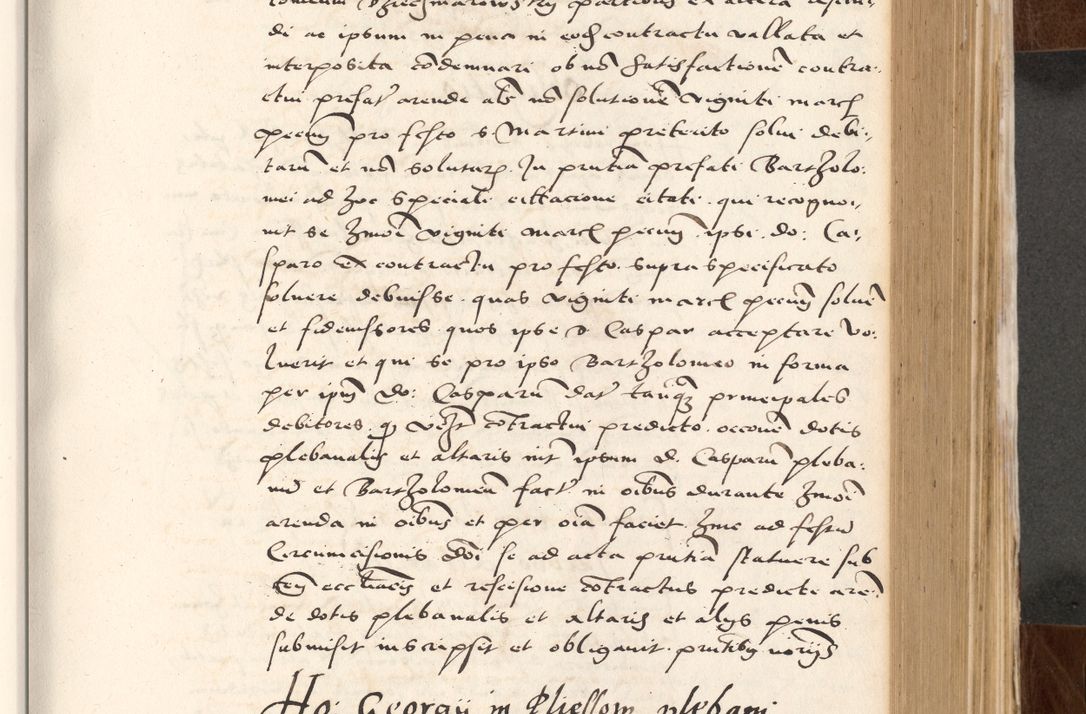 di ac ipsum in pena in eodem contractu vallata et
interposita condemnari ob non satisfactionem contra-
ctui prefat arende als non solutionem viginti march
pecun pro festo s. Martini preterito solui debi-
tarum et non solutarum. In presentia prefati Bartholo-
mei ad hoc speciali cittacione citati. qui recogno-
uit se hmoi viginti march pecun. ipsi do: Ca-
sparo ex contractu pro festo supra specificato
soluere debuisse. quas viginti march pecun soluet
et fideiussores quos ipse d Caspar acceptare vo-
luerit et qui se pro ipso Bartholomeo in forma
per ipm do: Casparum dat tanquam principales
debitores. contractui predicto occone dotis
plebanalis et altaris int ipsum d. Casparum pleba-
num et Bartholomeum fact in oibus durante hmoi
arenda in oibus et per oia faciet. hinc ad festum
Circumcisionis doi se ad acta prntia statuere sub
cen eccliacis et rescisione contractus predicte aren-
de dotis plebanalis et altaris et alys penis
submisit inscripsit et obligauit. prntibus
Georgii in plebani